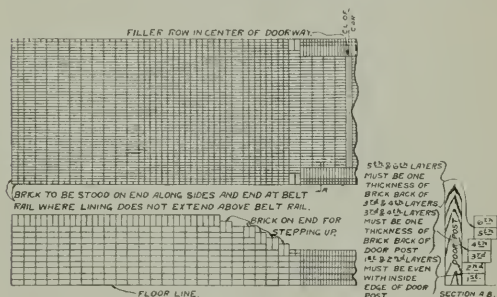 FILLER ROW IN CENTER OF DOORWAY.
BRICK TO BE STOOD ON END ALONG SIDES AND END AT BELT
RAIL WHERE LINING DOES NOT EXTEND ABOVE BELT RAIL.
BRICK ON END FOR
STEPPING UP.
FLOOR LINE
A
5th & 6th LAYERS
MUST BE ONE
THICKNESS OF
BRICK BACK OF
3rd & 4th LAYERS
3rd & 4th LAYERS
MUST BE ONE
THICKNESS OF
BRICK BACK OF
DOOR POST
1st & 2nd LAYERS
MUST BE EVEN
WITH INSIDE
EDGE OF DOOR
POST
DOOR POST
6th
5th
4th
3rd
2nd
1st
SECTION A B